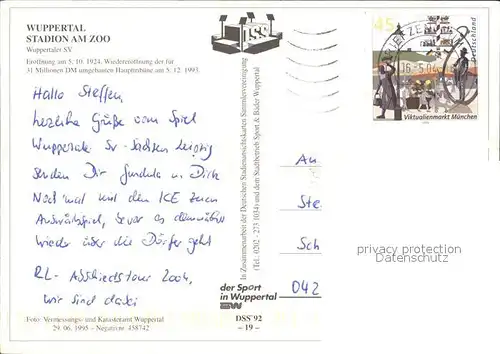 WUPPERTAL
STADION AM ZOO
Wuppertaler SV
Eröffnung am 5.10. 1924, Wiedereröffnung der für
31 Millionen DM umgebauten Haupttribüne am 5.12. 1993.
Hallo Steffen,
herzliche Grüße vom Spiel
Wuppertaler SV - Sachsen Leipzig
senden Dir Gundula u. Dirk
Nochmal mit dem ICE zum
Auswärtsspiel, bevor es demnächst
wieder über die Dörfer geht
RL - Abschiedstour 2004,
wir sind dabei
Foto: Vermessungs- und Katasteramt Wuppertal
29. 06. 1995 - Negativnr. 458742
In Zusammenarbeit der Deutschen Stadionansichtskarten Sammlervereinigung
(Tel.: 0202 - 273 1034) und dem Stadtbetrieb Sport & Bäder Wuppertal
DSS
der Sport
in Wuppertal
DSS'92
- 19 -
45
Deutschland
BRIEFZEN
16-5.04
Viktualienmarkt München
An
Ste
Sch
042
privacy protection
ansichtskartenversand.com